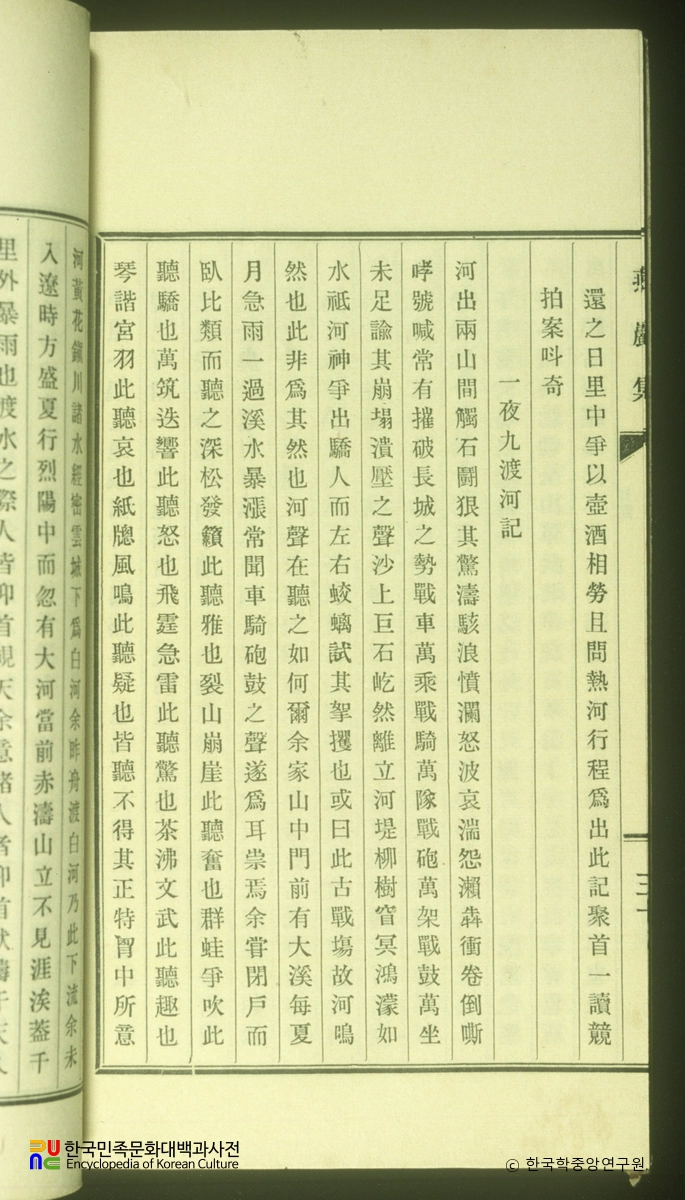 燕巖集
還之日里中爭以壺酒相勞且問熱河行程爲出此記聚首一讀競
拍案呌奇
一夜九渡河記
河出兩山間觸石鬪狠其驚濤駭浪憤瀾怒波哀湍怨瀨犇衝卷倒嘶
哮號喊常有摧破長城之勢戰車萬乘戰騎萬隊戰砲萬架戰鼓萬坐
未足諭其崩塌潰壓之聲沙上巨石屹然離立河堤柳樹窅冥鴻濛如
水祇河神爭出驕人而左右蛟螭試其挐攫也或曰此古戰塲故河鳴
然也此非爲其然也河聲在聽之如何爾余家山中門前有大溪每夏
月急雨一過溪水暴漲常聞車騎砲鼓之聲遂爲耳祟焉余甞閉戶而
臥比類而聽之深松發籟此聽雅也裂山崩崖此聽奮也群蛙爭吹此
聽驕也萬筑迭響此聽怒也飛霆急雷此聽驚也茶沸文武此聽趣也
琴諧宮羽此聽哀也紙牕風鳴此聽疑也皆聽不得其正特胷中所意
河黃花鎭川諸水經密雲城下爲白河余昨舟渡白河乃此下流余未
入遼時方盛夏行烈陽中而忽有大河當前赤濤山立不見涯涘葢千
里外暴雨也渡水之際人皆仰首視天余意諸人者仰首
한국민족문화대백과사전
Encyclopedia of Korean Culture
© 한국학중앙연구원